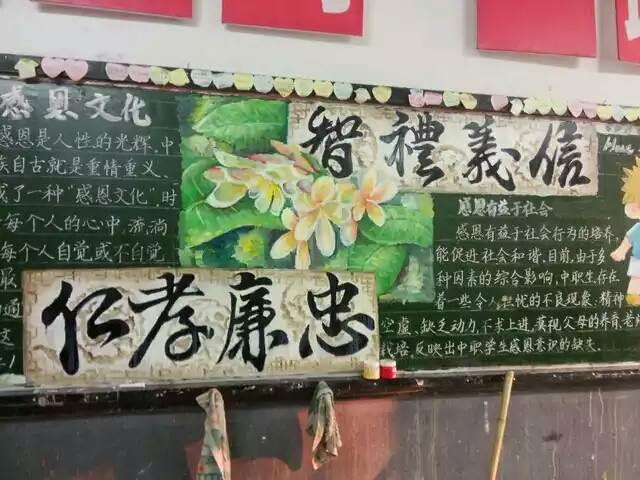 感恩文化
感恩是人性的光辉,中
族自古就是重情重义、
成了一种“感恩文化”时
每个人的心中,流淌
每个人自觉或不自觉
服
通
这
仁孝廉忠
智禮義信
感恩有益于社会
感恩有益于社会行为的培养,
能促进社会和谐,目前,由于多
种因素的综合影响,中职生存在
着一些令人担忧的不良现象:精神
空虚、缺乏动力、不求上进,漠视父母的养育,老师
栽培,反映出中职学生感恩意识的缺失。